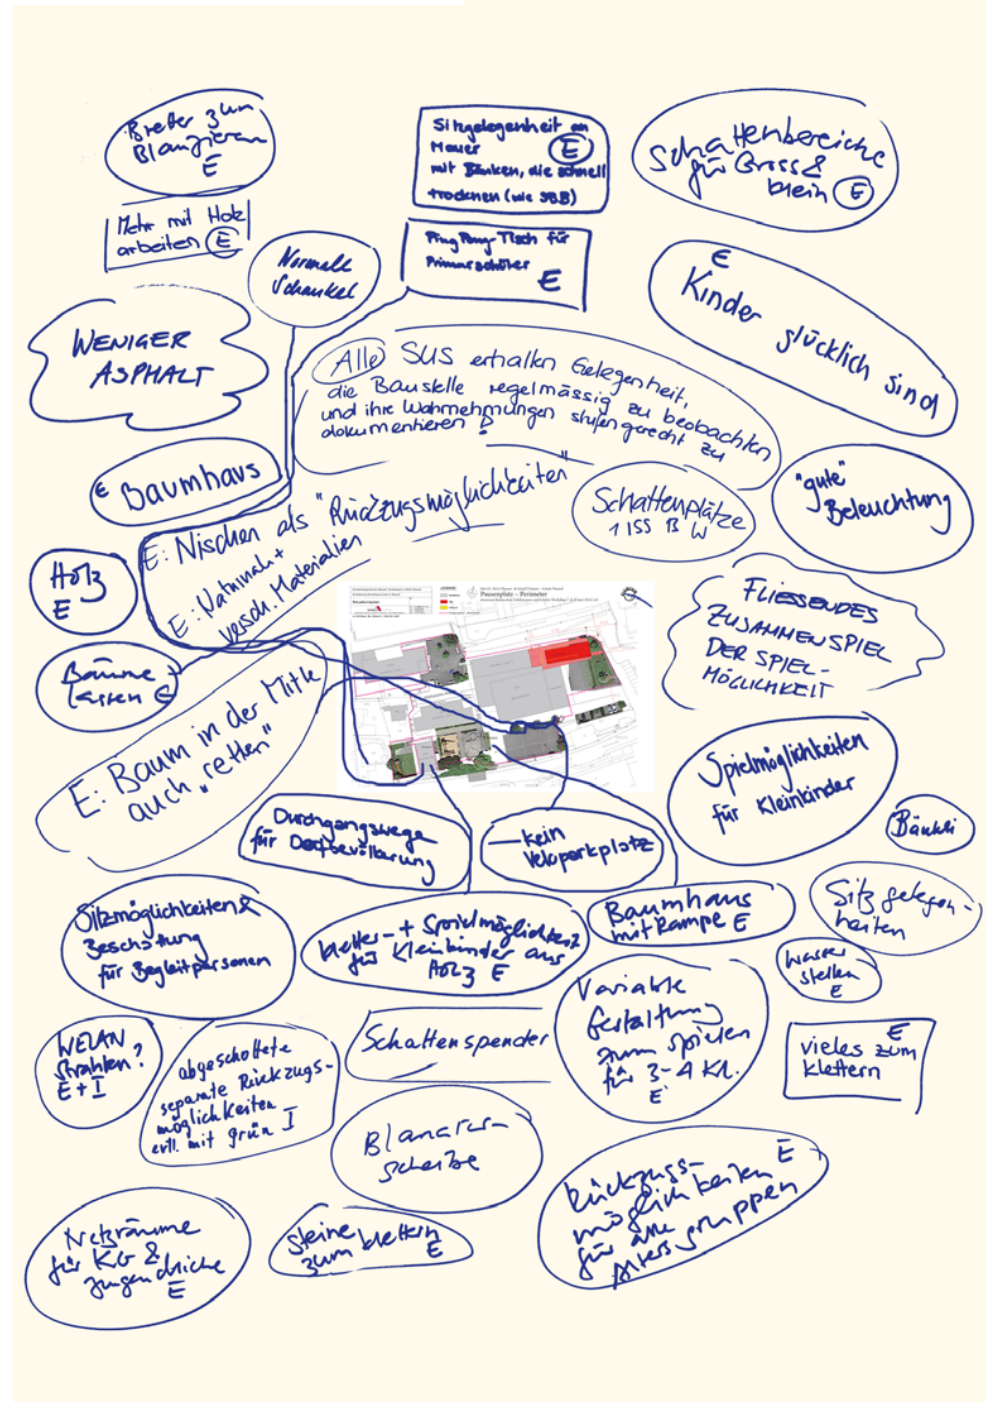 Bretter zum
Blangieren
E
Sitzgelegenheit an
Mauer E
mit Bänken, die schnell
trocknen (wie SBB)
Schattenbereiche
für Gross &
klein E
Mehr mit Holz
arbeiten E
Normale
Schaukel
Ping Pong-Tisch für
Primarschüler
E
E
Kinder glücklich sind
WENIGER
ASPHALT
Alle SUS erhalten Gelegenheit,
die Baustelle regelmässig zu beobachten
und ihre Wahrnehmungen stufengerecht zu
dokumentieren!
E Baumhaus
E: Nischen als "Rückzugsmöglichkeiten"
E: Naturnah +
versch. Materialien
Schattenplätze
"gute"
Beleuchtung
Holz
E
Pausenplatz - Perimeter
FLIESSENDES
ZUSAMMENSPIEL
DER SPIEL-
MÖGLICHKEIT
Bäume
lassen E
E: Baum in der Mitte
auch "retten"
Spielmöglichkeiten
für Kleinkinder
Bänkli
Durchgangswege
für Dorfbevölkerung
kein
Veloparkplatz
Sitzmöglichkeiten &
Beschattung
für Begleitpersonen
kletter- + Spielmöglichkeit
für Kleinkinder aus
Holz E
Baumhaus
mit Rampe E
Sitzgelegen-
heiten
Wasser
stellen
E
WELAN
Strahlen?
E + I
abgeschottete
separate Rückzugs-
möglichkeiten
evtl. mit grün I
Schattenspender
Variable
Gestaltung
zum spielen
für 3-4 Kl.
E
E
vieles zum
klettern
scheibe
Rückzugs- E
möglichkeiten
für alle
Altersgruppen
Netzräume
für KG &
Jugendliche
E
Steine
zum klettern
E